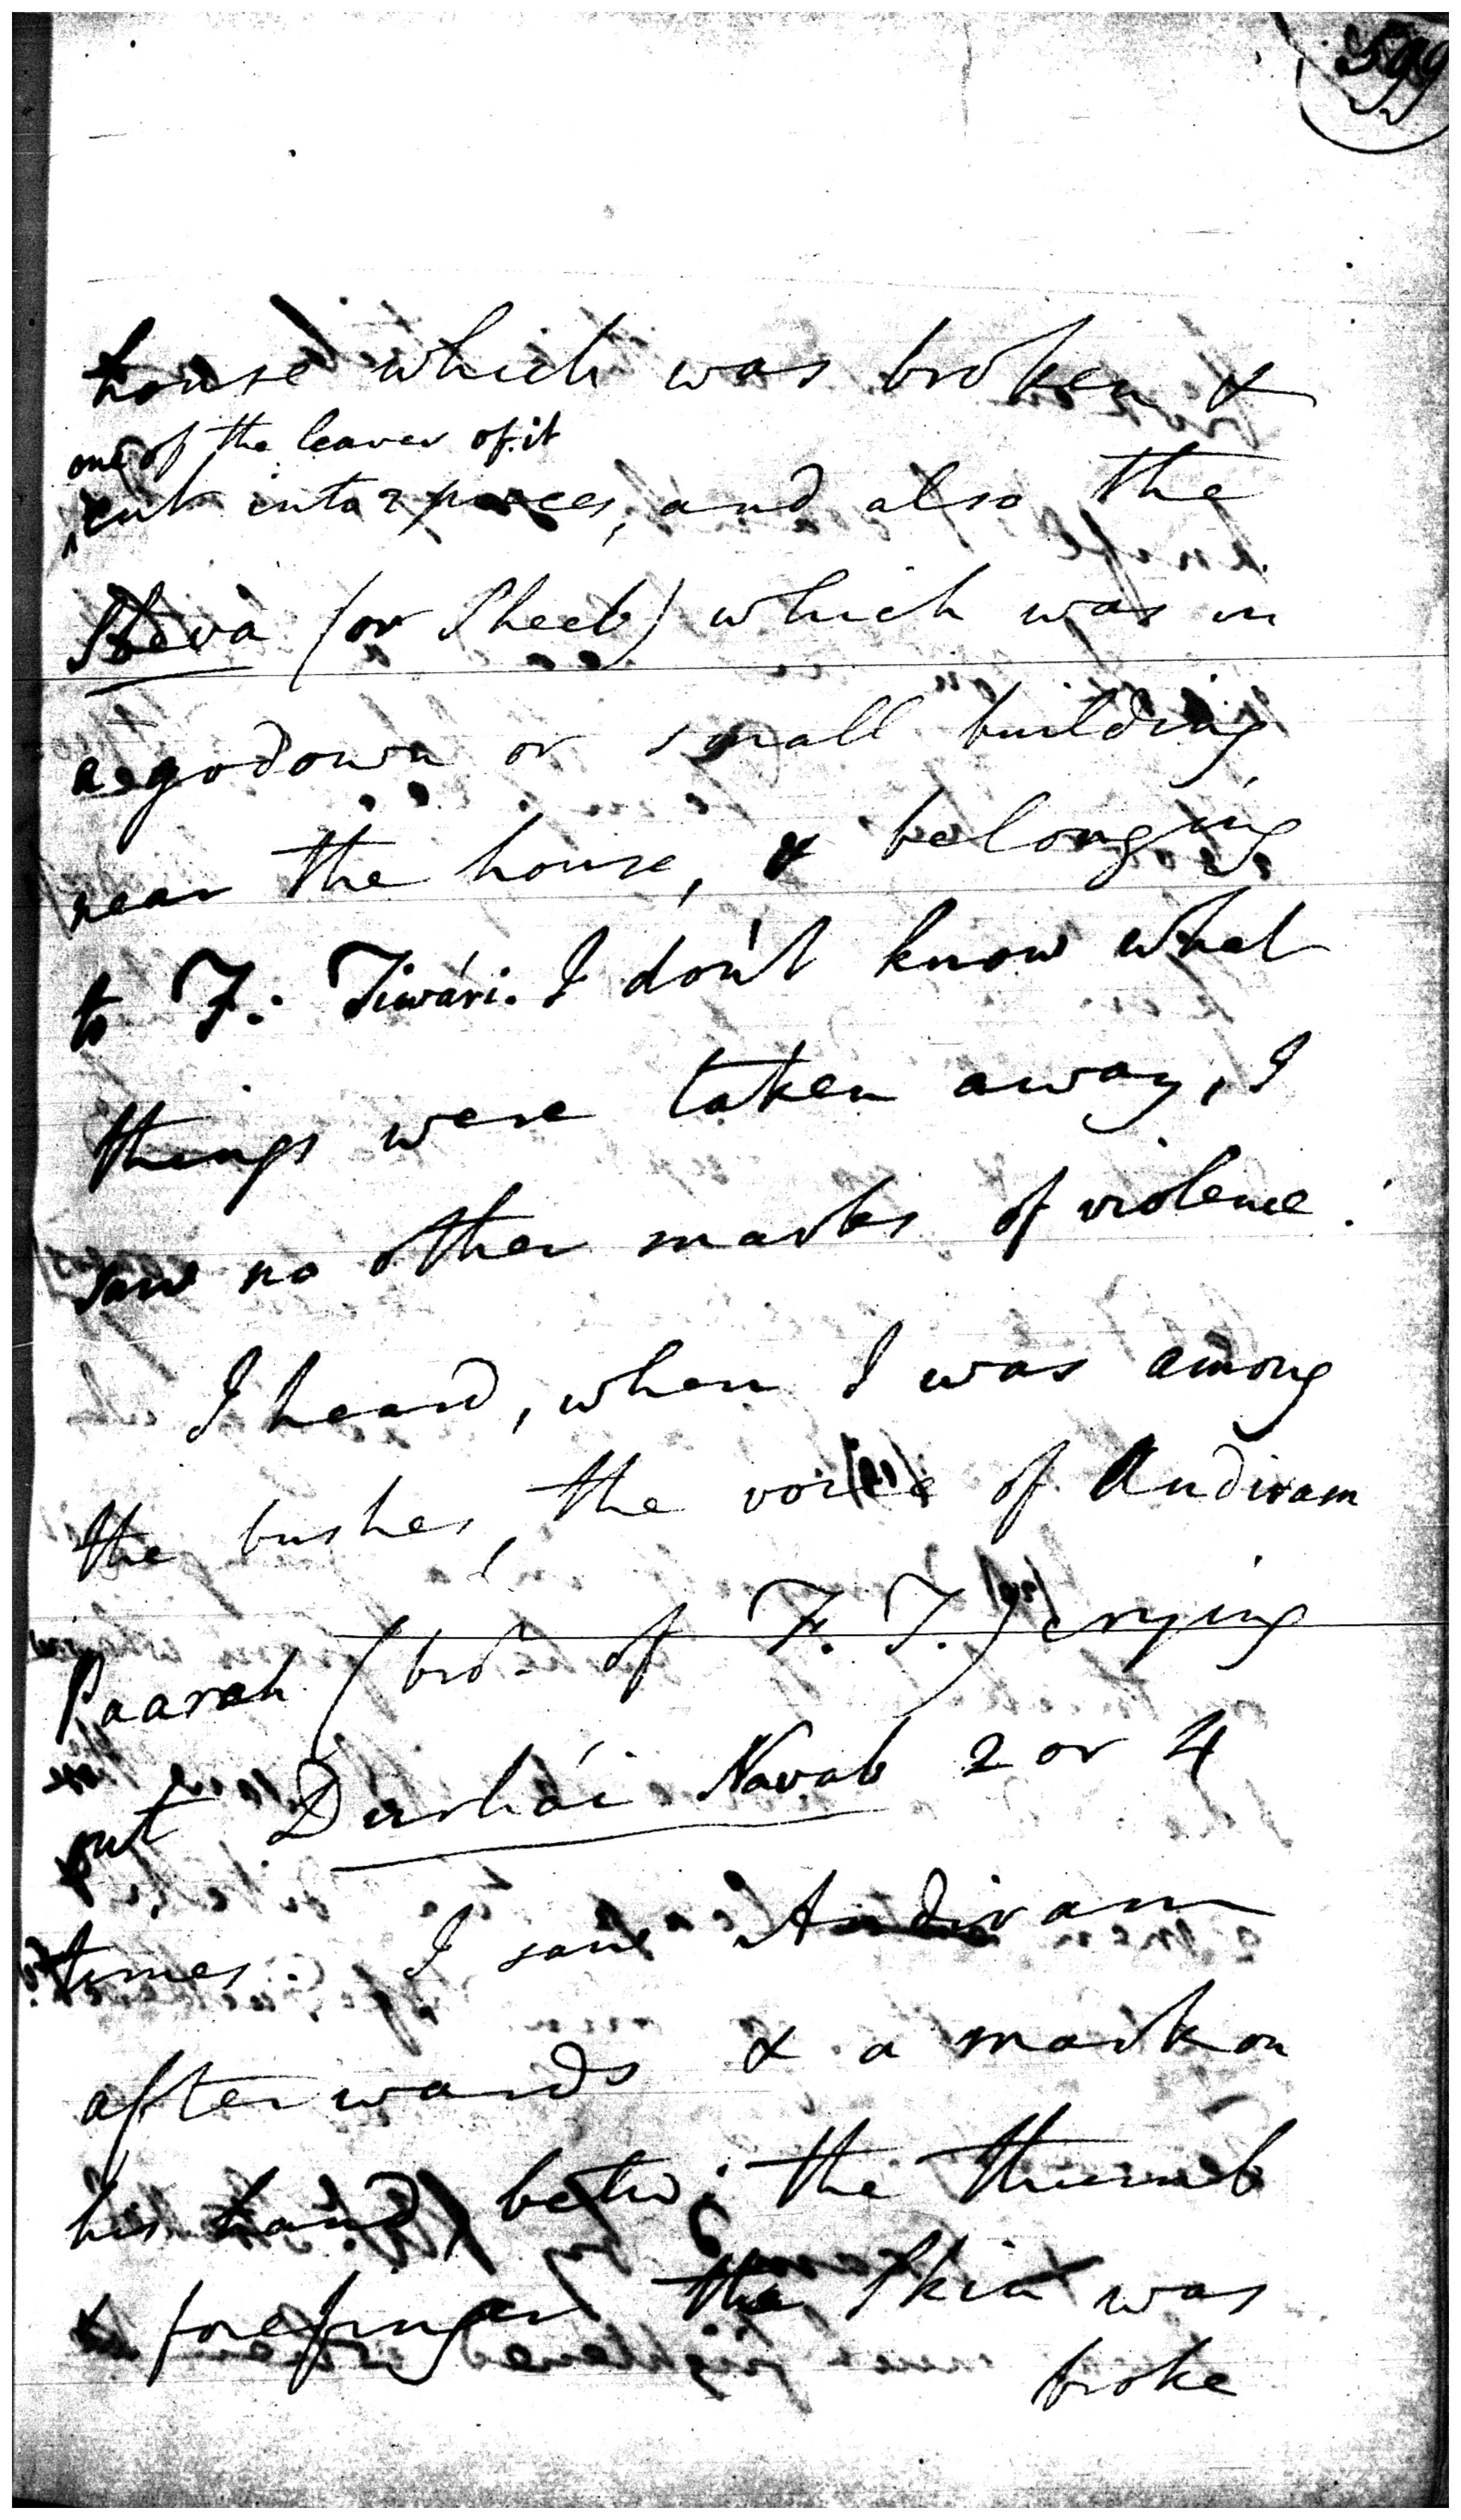 599
house which was broken &
one of the leaves of it
^cut into 2 pieces, and also the
Sheva (or Sheeb) which was in
a godown or small building
near the house, & belonging
to F. Tiwári. I don't know what
things were taken away, I
saw no other marks of violence.
I heard, when I was among
the bushes, the voice of Andiram
Paarah (bro.r of F. T.) crying
out Durhái Navab 2 or 4
times. I saw Andiram
afterwards & a mark on
his hand, betw: the thumb
& forefinger the skin was
broke